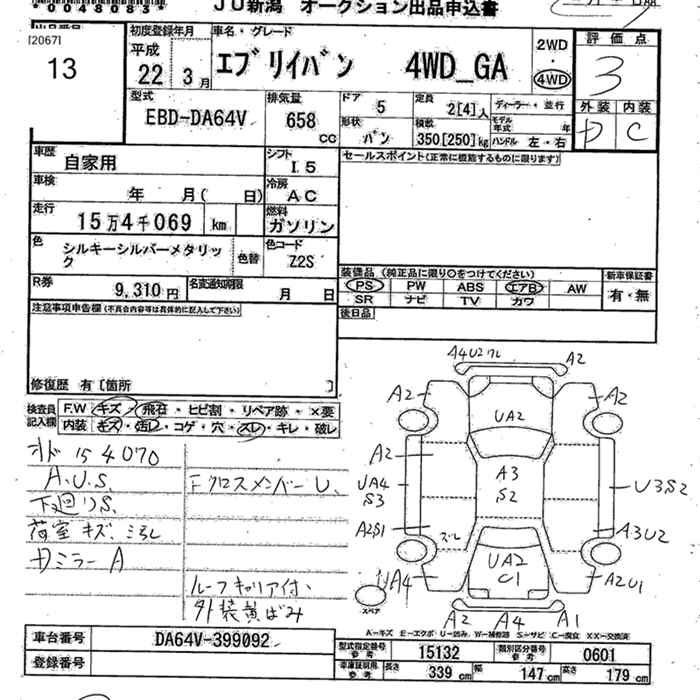 *00048083*
JU新潟 オークション出品申込書
[20671
13
初度登録年月
平成
22年 3月
車名・グレード
エブリイバン 4WD_GA
2WD
4WD
評価点
3
外装 内装
D C
型式
EBD-DA64V
排気量
658 cc
ドア
5
形状
バン
定員
2[4]人
積載
350[250]kg
ディーラー・並行
モデル年式 年
ハンドル 左・右
車歴
自家用
シフト
I.5
セールスポイント(正常に機能するものに限ります)
車検
年 月( 日)
冷房
AC
走行
15万4千069 km
燃料
ガソリン
色
シルキーシルバーメタリック
色替
色コード
Z2S
R券
9,310円
名変通知期限
月 日
装備品(純正品に限り○をつけてください)
PS PW ABS エアB AW
SR ナビ TV カワ
新車保証書
有・無
後日品
注意事項申告欄(不具合内容等は具体的に記入して下さい)
修復歴 有[箇所 ]
検査員記入欄
F.W キズ・飛石・ヒビ割・リペア跡・×要
内装 キズ・汚レ・コゲ・穴・ズレ・キレ・破レ
オド154070
A.U.S.
下廻りS.
荷室キズ、汚れ
Dミラー A
Fクロスメンバー U、
ルーフキャリア付、
外装黄ばみ
A4U2ワレ A2
A2 UA2 A2
A2 A3
UA4 S2 U3S2
S3
A2S1 ズレ A3U2
UA4 UA2 A2U1
C1
スペア
A2 A4 A1
A-キズ E-エクボ U-凹み W-補修跡 S-サビ C-腐食 XX-交換済
車台番号
DA64V-399092
登録番号
型式指定番号 参考
15132
類別区分番号 参考
0601
車庫証明用 参考
長さ 339cm 幅 147cm 高さ 179cm